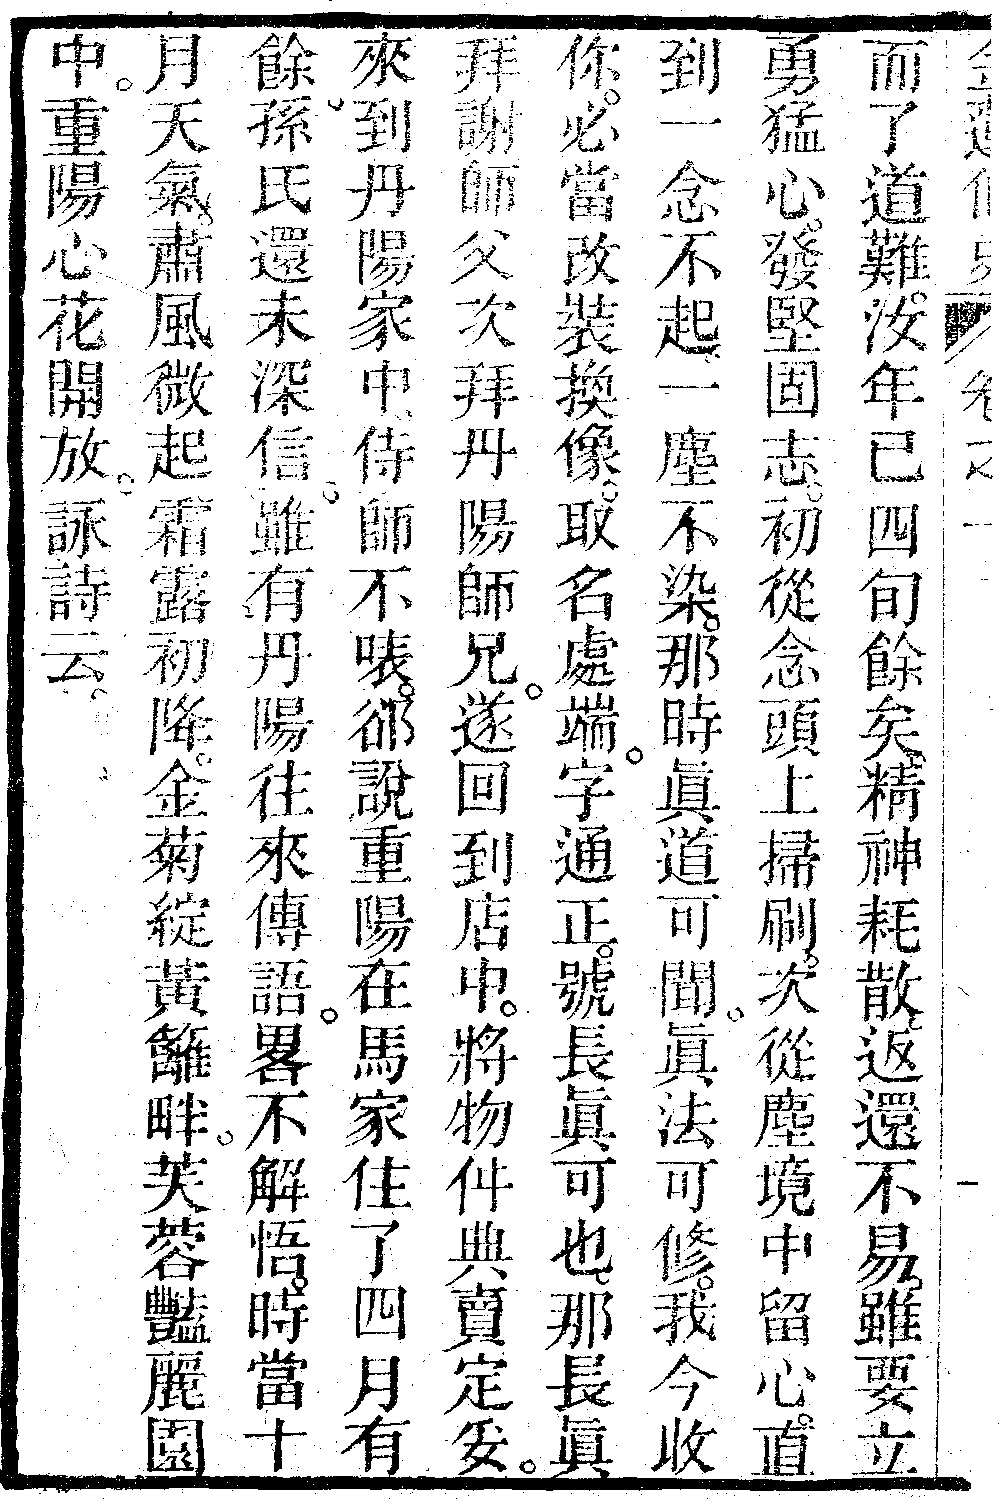 金蓮仙史 卷之一
而了道難。汝年已四旬餘矣。精神耗散。返還不易。雖要立
勇猛心。發堅固志。初從念頭上掃刷。次從塵境中留心。直
到一念不起、一塵不染。那時眞道可聞。眞法可修。我今收
你。必當改裝換像。取名處端。字通正。號長眞可也、那長眞
拜謝師父次拜丹陽師兄。遂回到店中。將物件典賣定妥。
來到丹陽家中、侍師不嗁。郤說重陽在馬家住了四月有
餘。孫氏還未深信。雖有丹陽往來傳語。畧不解悟。時當十
月天氣。肅風微起霜露初降。金菊綻黃籬畔。芙蓉豔麗園
中。重陽心花開放。詠詩云。